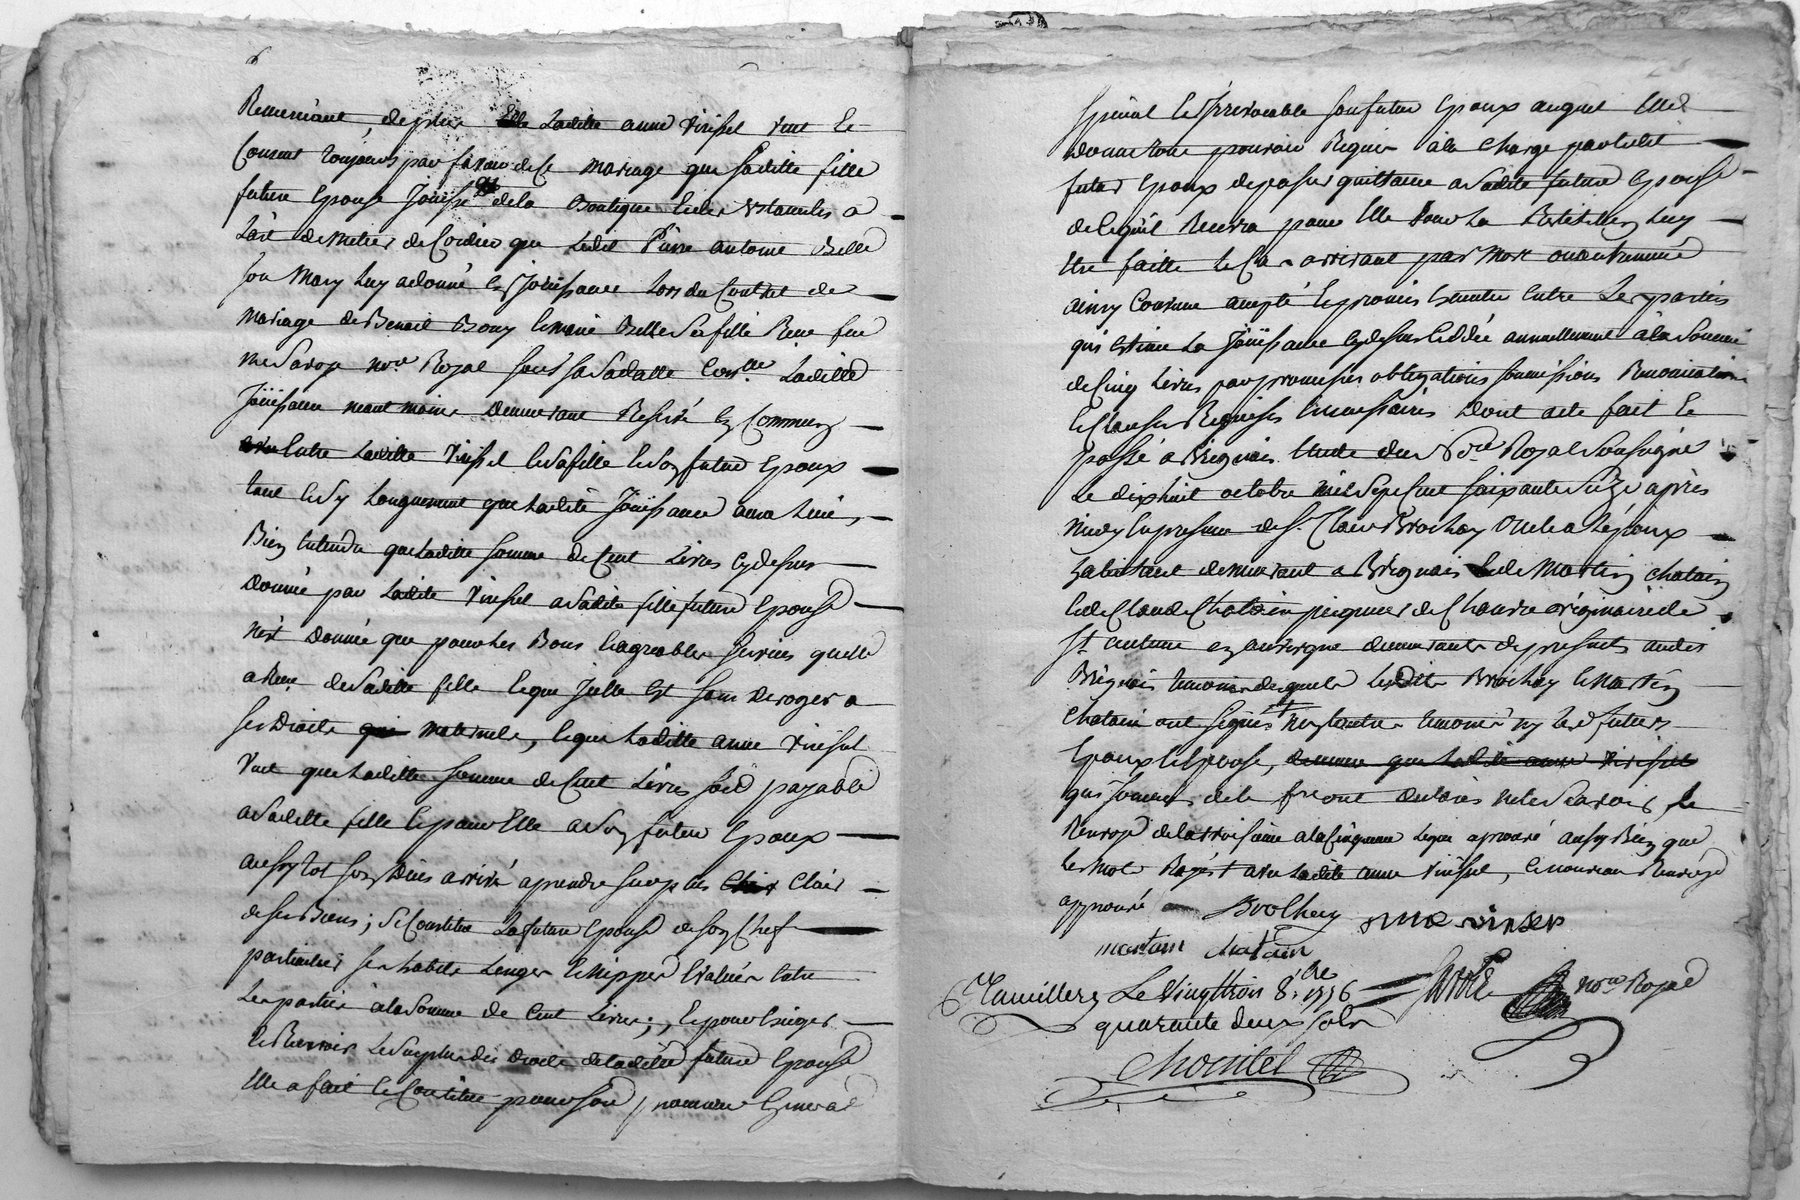 6
de plus Ladite anne Virissel veut et
Consent toujours par faveur de Ce mariage que saditte fille
future Epouse Jouisse de la Boutique et des Ustanciles a
L'art de metier de Cordier que Ledit Pierre antoine Belle
son Mary Luy a donné en Joüissance Lors du Contrat de
mariage de Benoit Bony et marie Belle Sa fille Reçu feu
me notre Royal sous sa datte Laditte
Joüissance neant moins demeurant en Commun
Entre Laditte Virissel et Sa fille et Son futur Epoux
tant et Sy Longuement que Ladite Joüissance aura Lieu,
Bien Entendu que Laditte somme de Cent Livres Cy dessus
donnée par Ladite Virissel a Sadite fille future Epouse
n'est donnée que pour Les Bons et agreables services quelle
a Reçu de Saditte fille et que Jcelle Est sans deroger a
ses Droits maternels, et que Laditte anne Virissel
Veut que Laditte somme de Cent Livres soit payable
a Saditte fille et pour Elle a Son futur Epoux
aussy tot Son Deces arrivé a prendre sur plus Clair
de ses Biens; Se Constitue La future Epouse de Son Chef
particulier ses habits Linges et Nippes Evalués Entre
Les parties à La Somme de Cent Livres; Et pour Exiger
et Recevoir Le Surplus des droits de Ladite future Epouse
Elle a fait et Constitué pour Son procureur General
special et Irrevocable son futur Epoux auquel Elle
donne tout pouvoir Requis à la Charge par Ledit
futur Epoux de passer quittance a Sadite future Epouse
de Ce qu'il Recevra pour Elle pour La Restitution Luy
Etre faitte Le Cas arrivant par mort ou autrement
ainsy Convenu accepté et promis Executer Entre Les parties
qui Estiment La Joüissance Cy dessus Cedée annuellement à La Somme
de Cinq Livres par promesses obligations soumissions Renonciations
et Clauses Requises et necessaires dont acte fait et
passé a Brignais Etude du Nore Royal Soussigné
Le dixhuit octobre mil Sept Cent Soixante Seize après
midy En presence de Sr Claire Brochay oncle a L'époux
habitant demeurant a Brignais et de Martin Chatain
et de Claude Chatain peigneur de Chanvre originaire de
St antheme en auvergne demeurants de presents audit
Brignais temoins desquels Lesdits Brochay et Martin
Chatain ont signés non L'autre temoin ny Les futurs
Epoux et Epouse, de meme que Ladite anne Virissel
qui Sommés de le fre ont declarés ne le Scavoir, le
Renvoy de La troisieme a La Cinquieme Ligne aprouvé aussy Bien que
Les mots Rayés avec Ladite anne Virissel, et nouveau Renvoy
approuvé
Brochay anne virisel
martain chatain
Ctl a millery Le vingt trois 8bre 1776
quarante deux sols
nore Royal
Chomitel